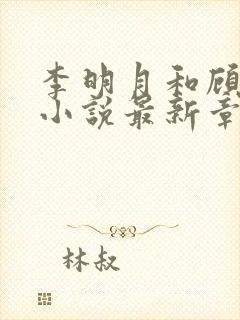 李明月和顾
小说最新章
林叔